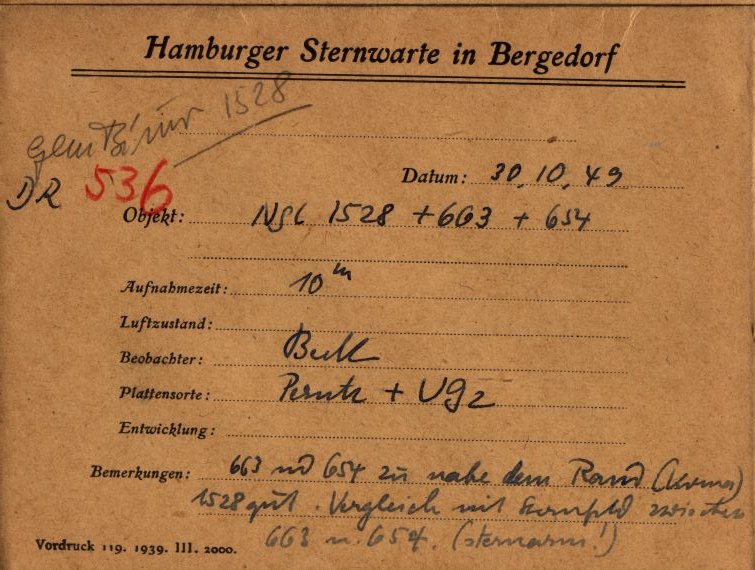 Hamburger Sternwarte in Bergedorf
1528
DR 536
Datum: 30.10.49
Objekt: NGC 1528 + 663 + 654
Aufnahmezeit: 10 m
Luftzustand:
Beobachter:
Plattensorte: Perutz + UG2
Entwicklung:
Bemerkungen: 663 und 654 zu nahe dem Rand (Koma)
1528 gut. Vergleich mit Sternfeld zwischen
663 u. 654. (sternarm!)
Vordruck 119. 1939. III. 2000.